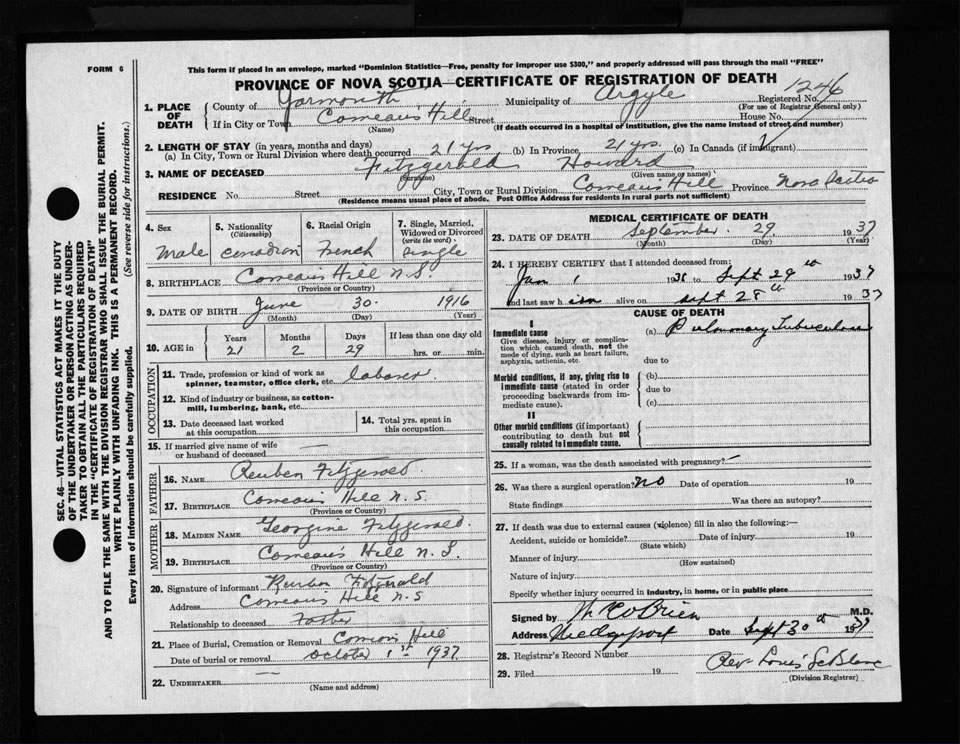 FORM 6
This form if placed in an envelope, marked "Dominion Statistics—Free, penalty for improper use $300," and properly addressed will pass through the mail "FREE"
PROVINCE OF NOVA SCOTIA—CERTIFICATE OF REGISTRATION OF DEATH
1. PLACE OF DEATH County of Yarmouth Municipality of Argyle Registered No. 1246
(For use of Registrar General only)
If in City or Town Comeau's Hill Street House No.
(Name) (If death occurred in a hospital or institution, give the name instead of street and number)
2. LENGTH OF STAY (in years, months and days)
(a) In City, Town or Rural Division where death occurred 21 yrs (b) In Province 21 yrs. (c) In Canada (if immigrant)
3. NAME OF DECEASED Fitzgerald Howard
(Surname) (Given name or names)
RESIDENCE No. Street City, Town or Rural Division Comeau's Hill Province Nova Scotia
(Residence means usual place of abode. Post Office Address for residents in rural parts not sufficient)
4. Sex Male
5. Nationality (Citizenship) Canadian
6. Racial Origin French
7. Single, Married, Widowed or Divorced (write the word) Single
8. BIRTHPLACE Comeau's Hill N.S.
(Province or Country)
9. DATE OF BIRTH June 30. 1916
(Month) (Day) (Year)
10. AGE in Years 21 Months 2 Days 29 If less than one day old hrs. or min.
OCCUPATION
11. Trade, profession or kind of work as spinner, teamster, office clerk, etc. laborer.
12. Kind of industry or business, as cotton-mill, lumbering, bank, etc.
13. Date deceased last worked at this occupation
14. Total yrs. spent in this occupation
15. If married give name of wife or husband of deceased —
FATHER
16. NAME Reuben Fitzgerald.
17. BIRTHPLACE Comeau's Hill N.S.
(Province or Country)
MOTHER
18. MAIDEN NAME Georgine Fitzgerald.
19. BIRTHPLACE Comeau's Hill N.S.
(Province or Country)
20. Signature of informant Reuben Fitzgerald
Address Comeau's Hill N.S
Relationship to deceased Father
21. Place of Burial, Cremation or Removal Comeau's Hill
Date of burial or removal October 1st 1937
22. UNDERTAKER —
(Name and address)
MEDICAL CERTIFICATE OF DEATH
23. DATE OF DEATH September. 29 1937
(Month) (Day) (Year)
24. I HEREBY CERTIFY that I attended deceased from:
Jan 1 1936 to Sept 29th 1937
and last saw him alive on Sept 28th 1937
CAUSE OF DEATH
I
Immediate cause
Give disease, injury or complication which caused death, not the mode of dying, such as heart failure, asphyxia, asthenia, etc.
(a) Pulmonary Tuberculosis
due to
Morbid conditions, if any, giving rise to immediate cause (stated in order proceeding backwards from immediate cause).
(b)
due to
(c)
II
Other morbid conditions (if important) contributing to death but not causally related to immediate cause.
25. If a woman, was the death associated with pregnancy? —
26. Was there a surgical operation? No Date of operation 19
State findings Was there an autopsy?
27. If death was due to external causes (violence) fill in also the following:—
Accident, suicide or homicide? Date of injury 19
(State which)
Manner of injury
(How sustained)
Nature of injury
Specify whether injury occurred in industry, in home, or in public place
Signed by O'Brien M.D.
Address Wedgeport Date Sept 30th 1937
28. Registrar's Record Number
29. Filed 19 Rev Louis LeBlanc
(Division Registrar)
SEC. 46—VITAL STATISTICS ACT MAKES IT THE DUTY
OF THE UNDERTAKER OR PERSON ACTING AS UNDER-
TAKER TO OBTAIN ALL THE PARTICULARS REQUIRED
IN THE "CERTIFICATE OF REGISTRATION OF DEATH"
AND TO FILE THE SAME WITH THE DIVISION REGISTRAR WHO SHALL ISSUE THE BURIAL PERMIT.
WRITE PLAINLY WITH UNFADING INK. THIS IS A PERMANENT RECORD.
Every item of information should be carefully supplied. (See reverse side for instructions.)